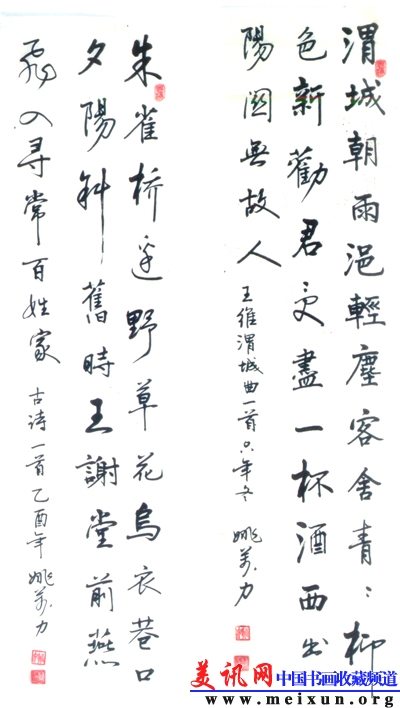 渭城朝雨浥輕塵客舍青〻柳
色新勸君更盡一杯酒西出
陽関無故人 王維渭城曲一首 年冬 姚萬力
朱雀桥边野草花烏衣巷口
夕陽斜舊時王謝堂前燕
飛入尋常百姓家 古诗一首乙酉年姚萬力
美讯网 中国书画收藏频道
www.meixun.org